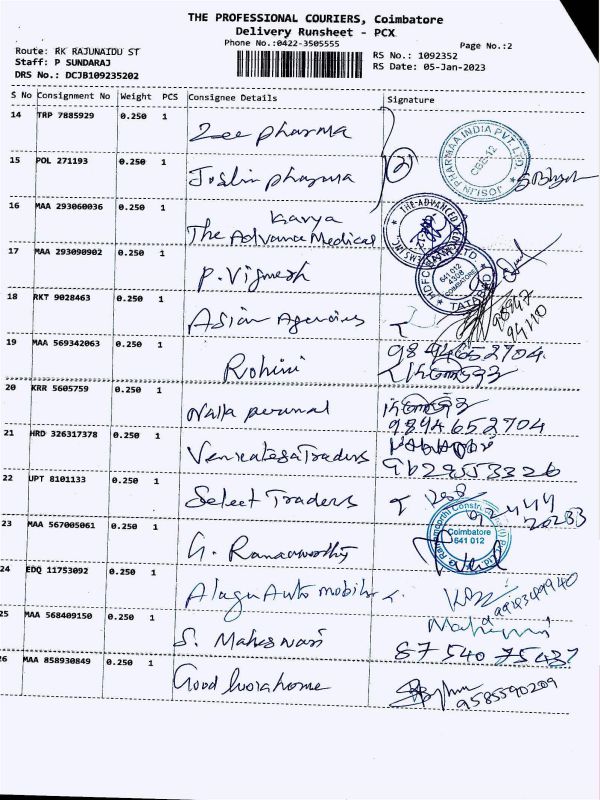 THE PROFESSIONAL COURIERS, Coimbatore
Delivery Runsheet - PCX
Phone No.:0422-3505555
Page No.:2
Route: RK RAJUNAIDU ST
RS No.: 1092352
Staff: P SUNDARAJ
RS Date: 05-Jan-2023
DRS No.: DCJB109235202
S No Consignment No Weight PCS Consignee Details Signature
14 TRP 7885929 0.250 1 Zee pharma
15 POL 271193 0.250 1 Joslin pharma
JOSLIN PHARMAA INDIA PVT.LTD.
CBE-12
16 MAA 293060036 0.250 1 Kavya
The Advance Medical
THE ADVANCED
17 MAA 293090902 0.250 1 P. Vignesh
641 012
COIMBATORE
TATABAD
18 RKT 9028463 0.250 1 Asian Agencies
19 MAA 569342063 0.250 1 Rohini
9844652704
20 KRR 5605759 0.250 1 Nalla perumal
9894652704
21 HRD 326317378 0.250 1 Venkatesa Traders
9629553326
22 UPT 8101133 0.250 1 Select Traders
23 MAA 567005061 0.250 1 G. Ramamoorthy
Coimbatore
641 012
24 EDQ 11753092 0.250 1 Alagu Auto mobiles
25 MAA 568409150 0.250 1 S. Maheswari
87540 75437
26 MAA 858930849 0.250 1 Good work home
9585590209